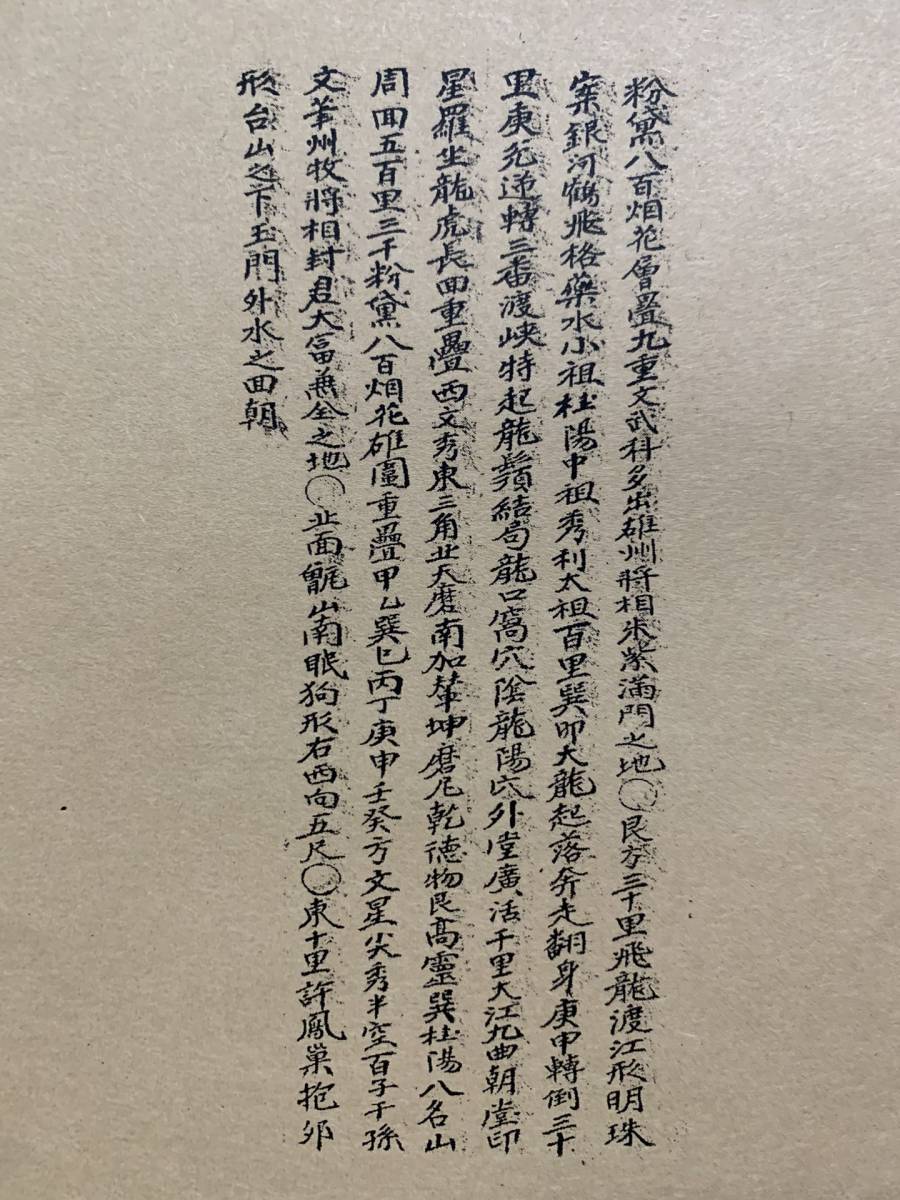 粉黛八百烟花層疊九重文武科多出雄州將相朱紫滿門之地○艮方三十里飛龍渡江形明珠
案銀河鶴飛格藥水小祖杜陽中祖秀利太祖百里巽卯大龍起落奔走翻身庚申轉倒三十
里庚兊逆轉三番渡峽特起龍鬚結局龍口窩穴陰龍陽穴外堂廣活千里大江九曲朝堂印
星羅坐龍虎長回重疊西文秀東三角北天磨南加輦坤磨尼乾德物艮高靈巽杜陽八名山
周回五百里三千粉黛八百烟花雄圖重疊甲乙巽巳丙丁庚申壬癸方文星尖秀半空百子千孫
文筆州牧將相封君大富兼全之地○北面甑山南眠狗形右西向五尺○東十里許鳳巢抱卵
形台山之下玉門外水之回朝